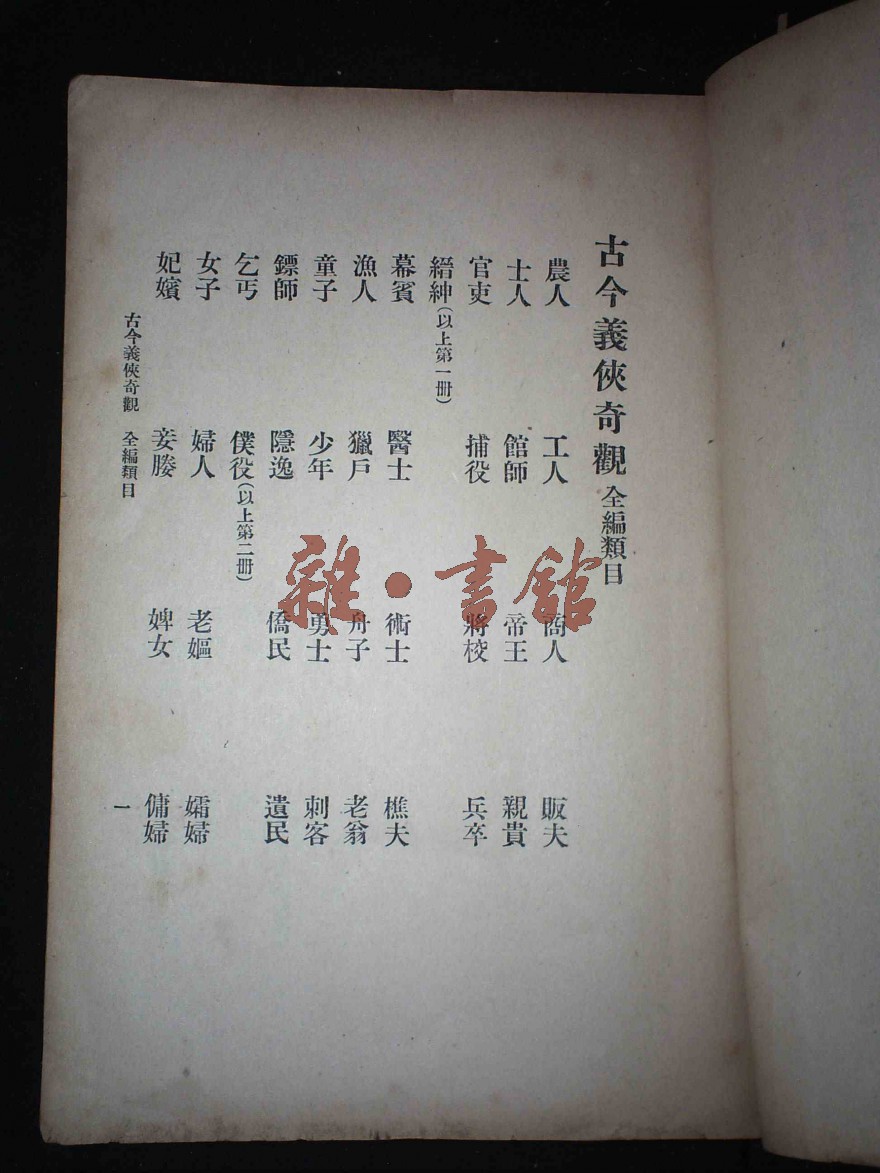 古今義俠奇觀 全編類目
農人 工人 商人 販夫
士人 館師 帝王 親貴
官吏 捕役 將校 兵卒
縉紳(以上第一册)
幕賓 醫士 術士 樵夫
漁人 獵戶 舟子 老翁
童子 少年 勇士 刺客
鏢師 隱逸 僑民 遺民
乞丐 僕役(以上第二册)
女子 婦人 老嫗 孀婦
妃嬪 妾媵 婢女 傭婦
古今義俠奇觀 全編類目 一
雜·書館